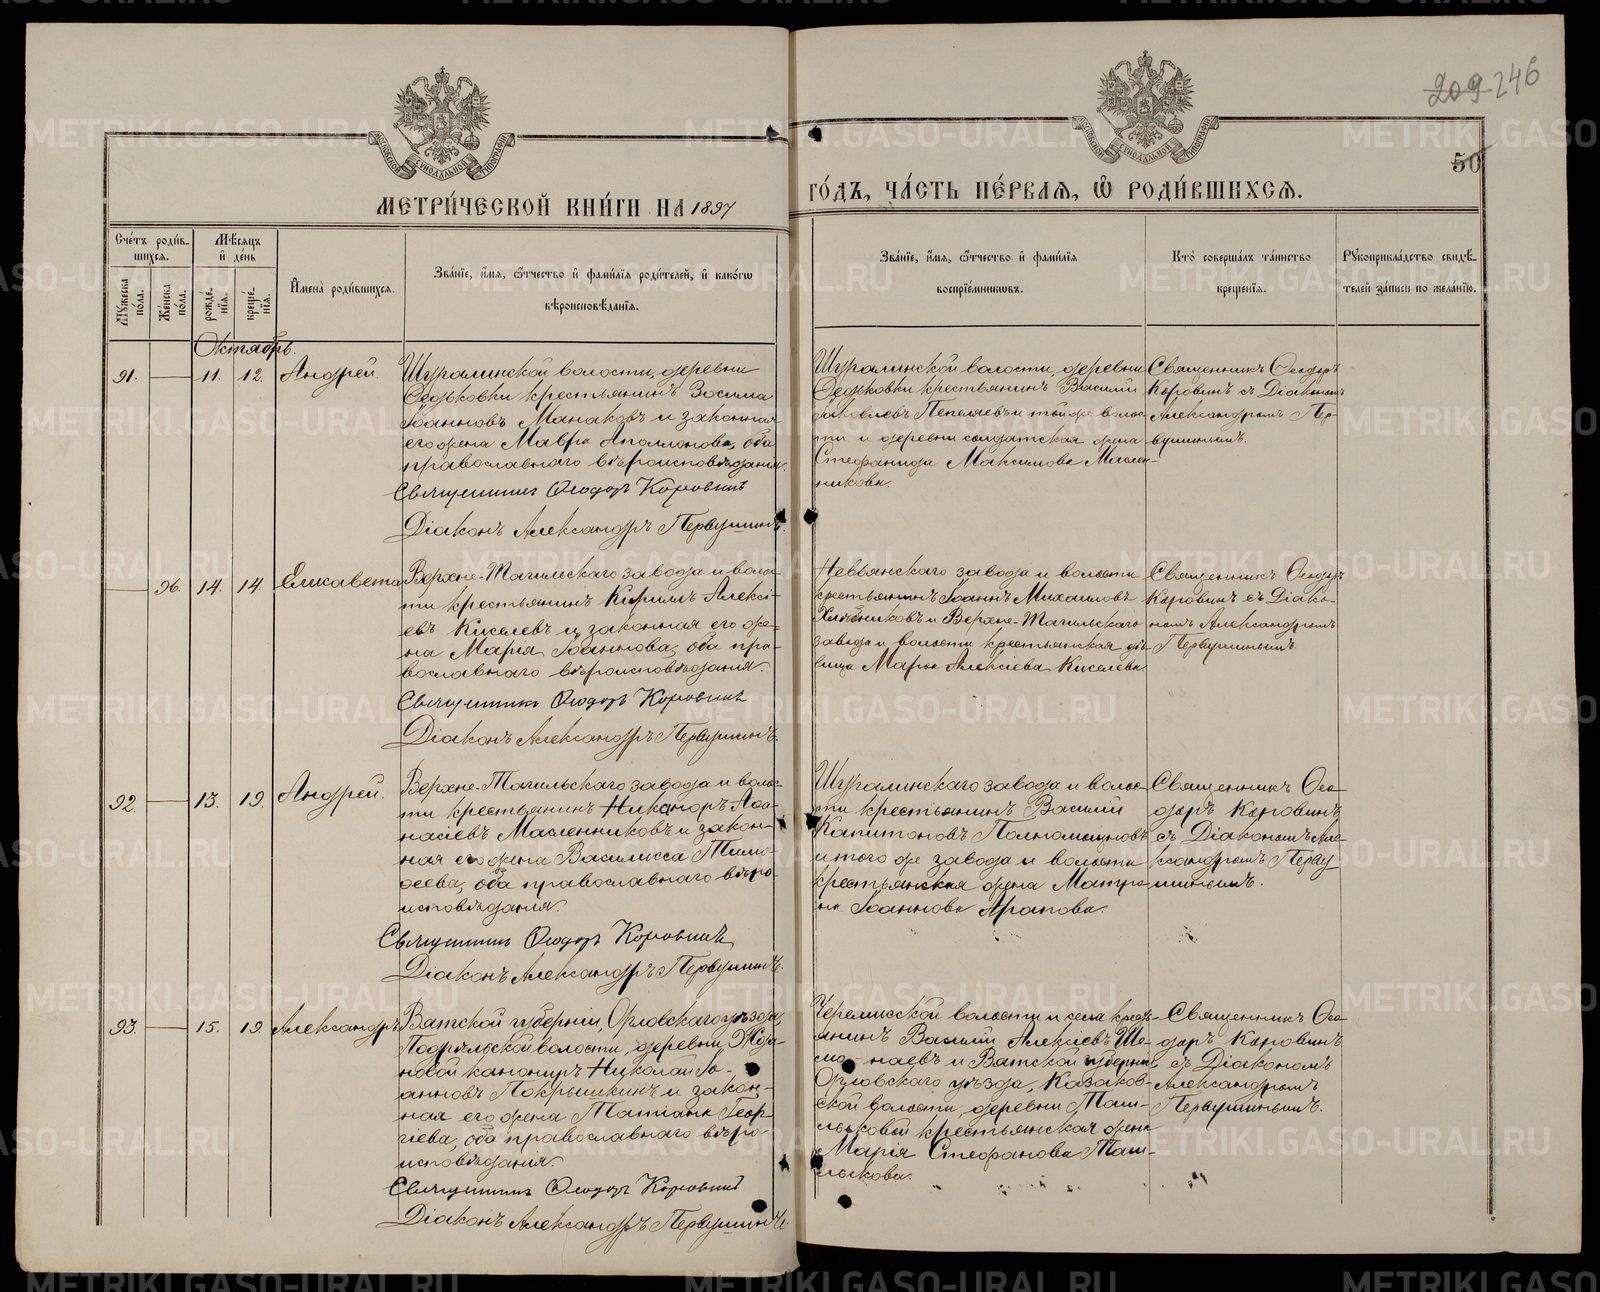 209 246
50
МЕТРИ́ЧЕСКОЙ КНИ́ГИ НА 1897
ГО́ДЪ, ЧА́СТЬ ПЕ́РВАѦ, Ѡ҆ РОДИ́ВШИХСѦ.
Сче́тъ роди́в-
шихсѧ.
Мѣ́сѧцъ
и҆ де́нь
Мꙋ́жеска
по́ла.
Же́нска
по́ла.
рожде́-
нїѧ.
креще́-
нїѧ.
И҆мена̀ роди́вшихсѧ.
Зва́нїе, и҆́мѧ, ѻ҆́тчество и҆ фами́лїѧ роди́телей, и҆ како́гѡ
вѣроисповѣ́данїѧ.
Зва́нїе, и҆́мѧ, ѻ҆́тчество и҆ фами́лїѧ
воспрїе́мникѡвъ.
Кто̀ соверша́лъ та́инство
креще́нїѧ.
Рꙋкоприкла́дство свидѣ́-
телей за́писи по жела́нїю.
Октябрь.
91. 11. 12. Андрей.
Шуралинской волости, деревни
Федьковки крестьянинъ Зосима
Іоанновъ Манаковъ и законная
его жена Мавра Аполлонова, оба
православнаго вѣроисповѣданія.
Священникъ Ѳеодоръ Коровинъ
Діаконъ Александръ Первушинъ.
Шуралинской волости, деревни
Федьковки крестьянинъ Василій
Яковлевъ Пепеляевъ и той же волос-
ти и деревни солдатская жена
Стефанида Максимова Маслен-
никова.
Священникъ Ѳеодоръ
Коровинъ съ Діакономъ
Александромъ Пер-
вушинымъ.
96. 14. 14. Елисавета
Верхне-Тагильскаго завода и волос-
ти крестьянинъ Кириллъ Алексі-
евъ Киселевъ и законная его же-
на Марія Іоаннова, оба пра-
вославнаго вѣроисповѣданія.
Священникъ Ѳеодоръ Коровинъ
Діаконъ Александръ Первушинъ.
Невьянскаго завода и волости
крестьянинъ Іоаннъ Михаиловъ
и Верхне-Тагильскаго
завода и волости крестьянская дѣ-
вица Марья Алексіева Киселева
Священникъ Ѳеодоръ
Коровинъ съ Діако-
номъ Александромъ
Первушинымъ.
92. 13. 19. Андрей.
Верхне-Тагильскаго завода и волос-
ти крестьянинъ Никаноръ Аѳа-
насіевъ Масленниковъ и закон-
ная его жена Василисса Тимо-
ѳеева, оба православнаго вѣро-
исповѣданія.
Священникъ Ѳеодоръ Коровинъ
Діаконъ Александръ Первушинъ.
Шуралинскаго завода и волос-
ти крестьянинъ Василій
Капитоновъ
и того же завода и волости
крестьянская жена Матре-
на Іоаннова Арапова.
Священникъ Ѳео-
доръ Коровинъ
съ Діакономъ Але-
ксандромъ Перву-
шинымъ.
93. 15. 19. Александръ
Вятской губерніи, Орловскаго уѣзда,
волости, деревни
канониръ Николай Іо-
анновъ Покрышкинъ и закон-
ная его жена Татіана Геор-
гіева, оба православнаго вѣро-
исповѣданія.
Священникъ Ѳеодоръ Коровинъ
Діаконъ Александръ Первушинъ.
Черемисской волости и села кресть-
янинъ Василій Алексіевъ
и Вятской губерніи,
Орловскаго уѣзда, Казаков-
ской волости, деревни
крестьянская жена
Марія Стефанова
Священникъ Ѳео-
доръ Коровинъ
съ Діакономъ
Александромъ
Первушинымъ.
METRIKI.GASO-URAL.RU